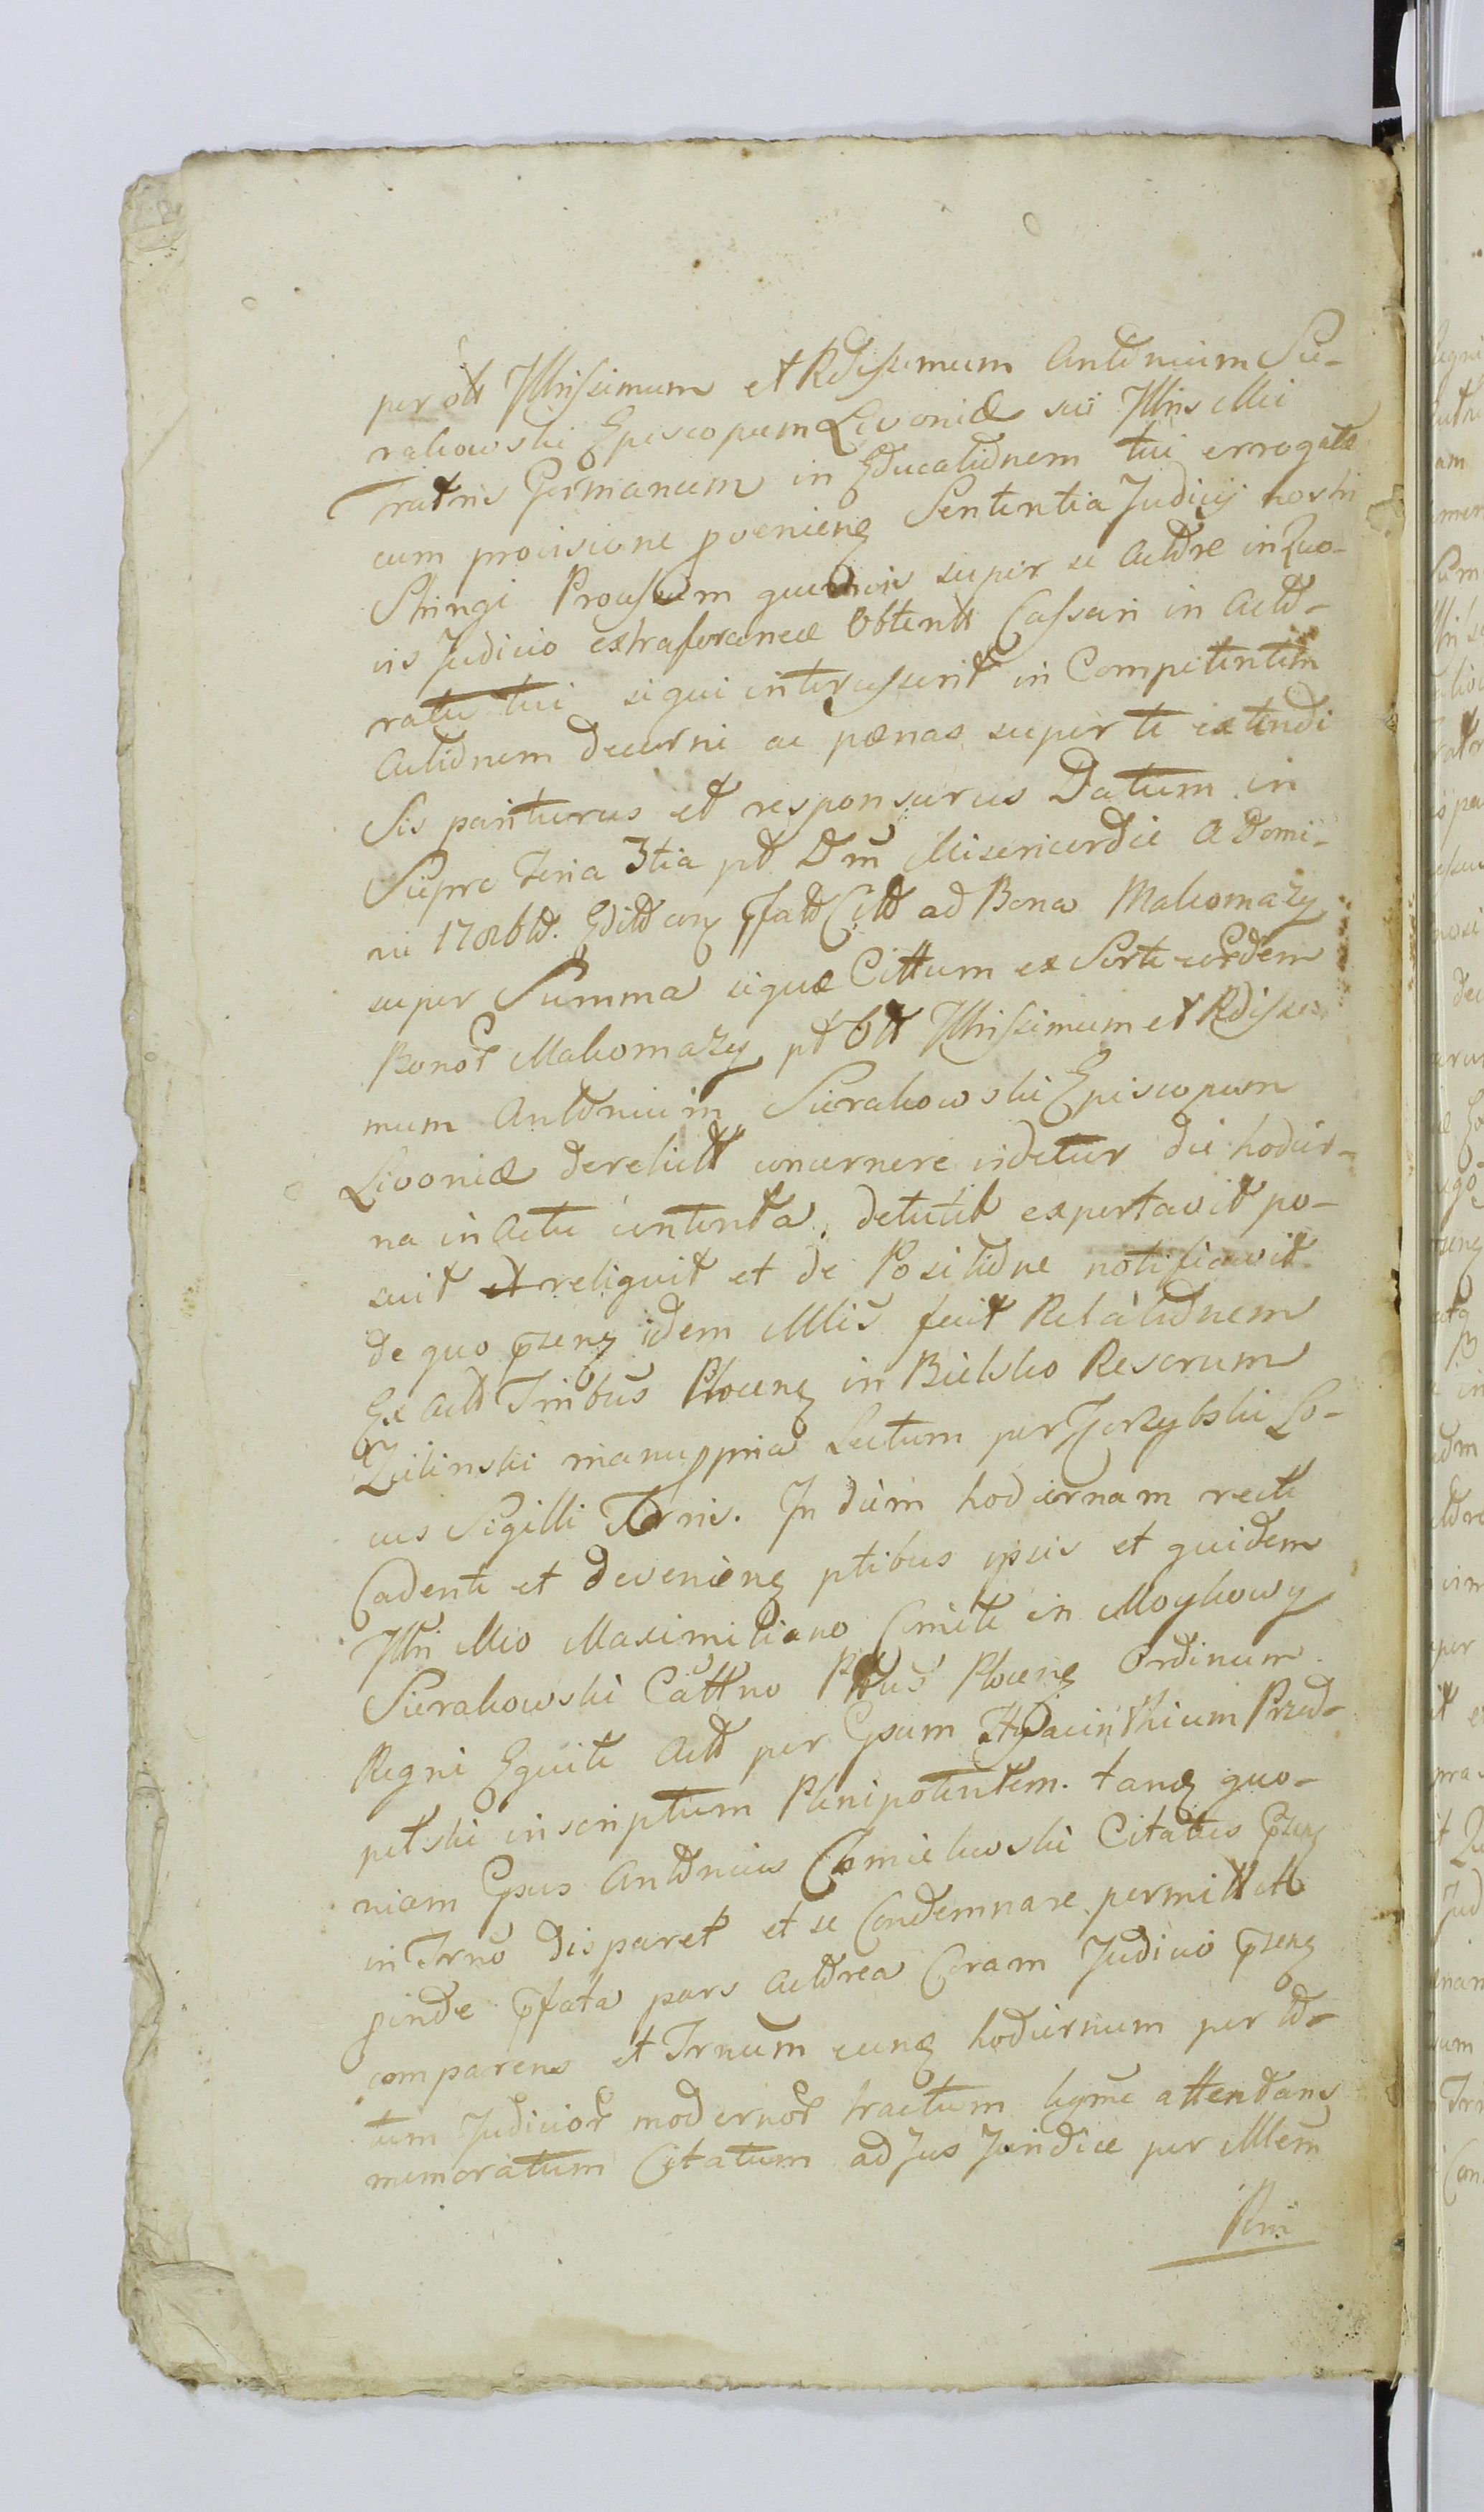 per ott Jllrissimum et Rdissimum Antonium Sie-
rakowski Episcopum Livoniæ sui Jllris Mci
Fratris Germanum in Educationem tui errogatæ
cum provisione proveniens Sententia Judicij nostri
Stringi Processum quemvis super se Actore in Quo-
vis Judicio extraforanee Obtentt Cassari in Acto-
ratu tui siqui intercesserit in Competentem
Actionem decerni ac pœnas super te extendi
Sis pariturus et responsurus Datum in
Sierpc Feria 3tia pt Dm Misericordiæ A Domi-
ni 178
super Summa siqua Cittum ex Sorte eordem
Bonor Makomazy pt ott Jllrissimum et Rdissi
mum Antonium Sierakowski Episcopum
Livoniæ derelictt concernere videtur die hodier-
na in Actu contenta, detulit exportavit po-
suit et reliquit et de Positione notificavit
de quo pzens idem Mlis fecit Relationem
Ex Actt Trribus Plocens in Bielsko Resorum
Zielinski manu ppria Lectum per Lo-
cus Sigilli Tris. Jn diem hodiernam recte
Cadente et deveniens ptibus ipsis et quidem
Jllri Mco Maximiliano Comite in Moykowy
Sierakowski Cattno Pttus Plocens Ordinum
Regni Equite Actt per Gsum Hyacinthium Przed-
petski inscriptum Plenipotentem. tanq quo-
niam Gsus Antonius Chmielewski Citatus pzens
in Trno disparet et se Condemnare permittett
pinde pfata pars Actorea Coram Judicio pzens
comparens et Trnum eunq hodiernum per to-
tum Judicior modernor tractum legme attentans
memoratum Citatum ad Jus Juridice per Mlem